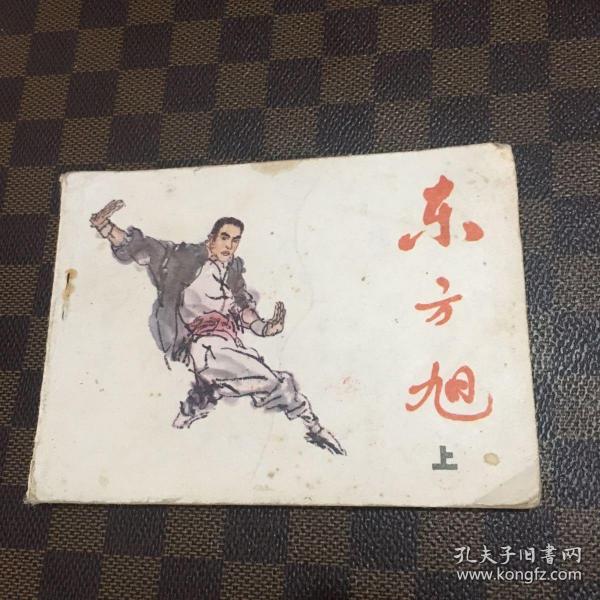 东方旭
上
孔夫子旧書网
www.kongfz.com